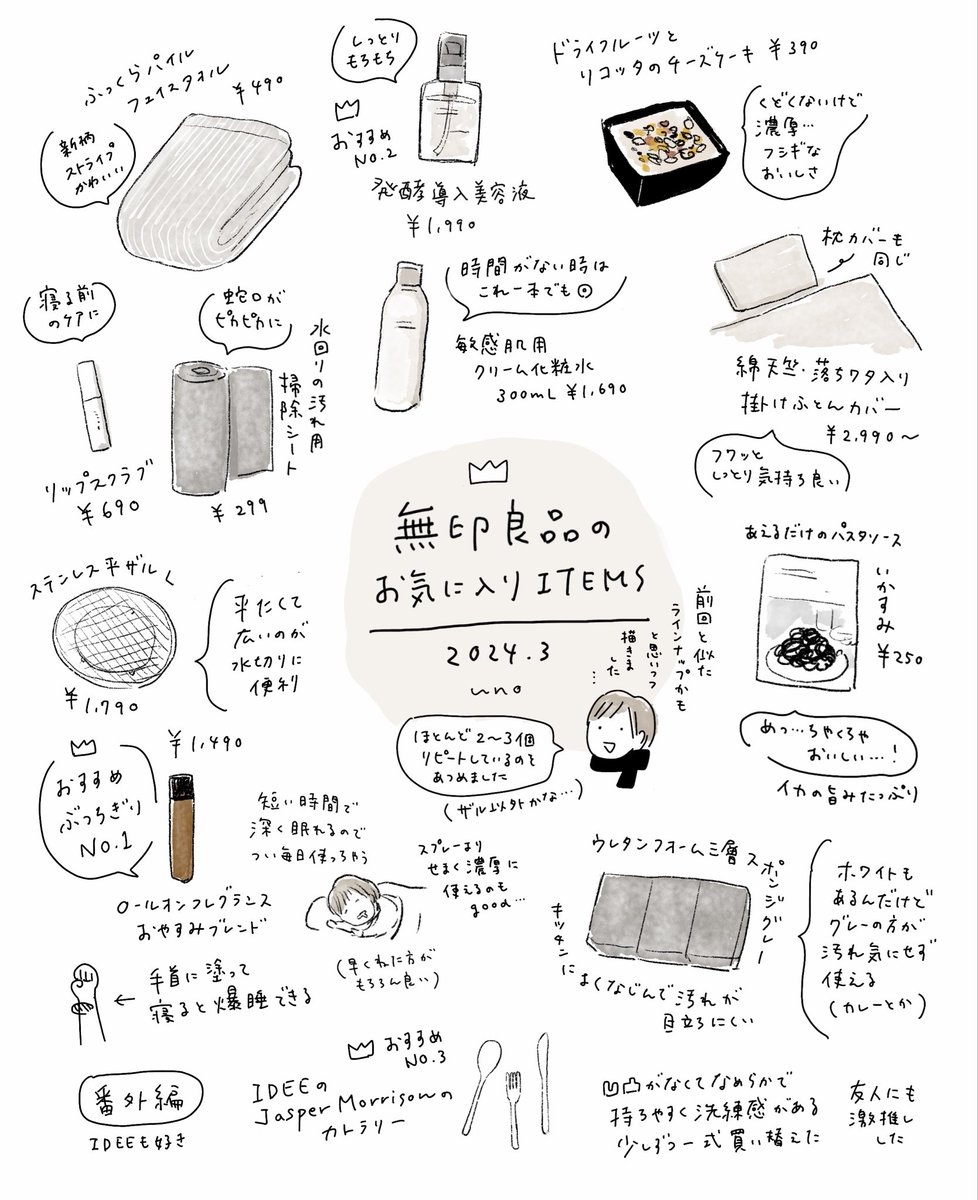 ふっくらパイル
フェイスタオル
¥490
新柄
ストライプ
かわいい
しっとり
もちもち
おすすめ
NO.2
発酵導入美容液
¥1,990
ドライフルーツと
リコッタのチーズケーキ ¥390
くどくないけど
濃厚…
フシギな
おいしさ
寝る前
のケアに
リップスクラブ
¥690
蛇口が
ピカピカに
水回りの汚れ用
掃除シート
¥299
時間がない時は
これ一本でも◎
敏感肌用
クリーム化粧水
300mL ¥1,690
枕カバーも
同じ
綿天竺・落ちワタ入り
掛けふとんカバー
¥2,990〜
フワッと
しっとり気持ち良い
無印良品の
お気に入りITEMS
2024.3
uno
前回と似た
ラインナップかも
と思いつつ
描きま
した…
ほとんど2〜3個
リピートしているのを
あつめました
(ザル以外かな…)
ステンレス平ザル
¥1,790
平たくて
広いのが
水切りに
便利
あえるだけのパスタソース
いかすみ
¥250
めっ…ちゃくちゃ
おいしい…!
イカの旨みたっぷり
おすすめ
ぶっちぎり
NO.1
¥1,490
ロールオンフレグランス
おやすみブレンド
短い時間で
深く眠れるので
つい毎日使っちゃう
スプレーより
せまく濃厚に
使えるのも
good…
(早くねた方が
もちろん良い)
← 手首に塗って
寝ると爆睡できる
ウレタンフォーム三層
スポンジグレー
キッチンに
よくなじんで汚れが
目立ちにくい
ホワイトも
あるんだけど
グレーの方が
汚れ気にせず
使える
(カレーとか)
番外編
IDEEも好き
おすすめ
NO.3
IDEEの
Jasper Morrisonの
カトラリー
凹凸がなくてなめらかで
持ちやすく洗練感がある
少しずつ一式買い替えた
友人にも
激推し
した